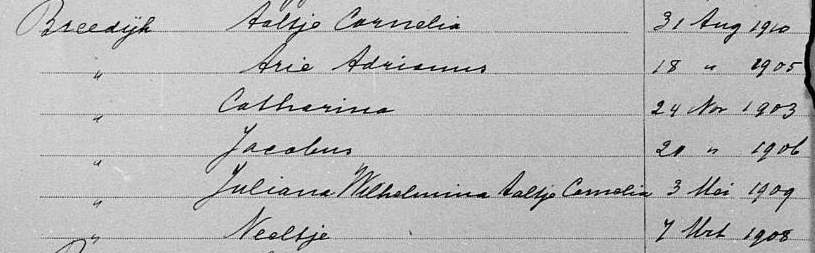 Breedijk Aaltje Cornelia 31 Aug 1910
" Arie Adrianus 18 " 1905
" Catharina 24 Nov 1903
" Jacobus 20 " 1906
" Juliana Wilhelmina Aaltje Cornelia 3 Mei 1909
" Neeltje 7 Mrt 1908